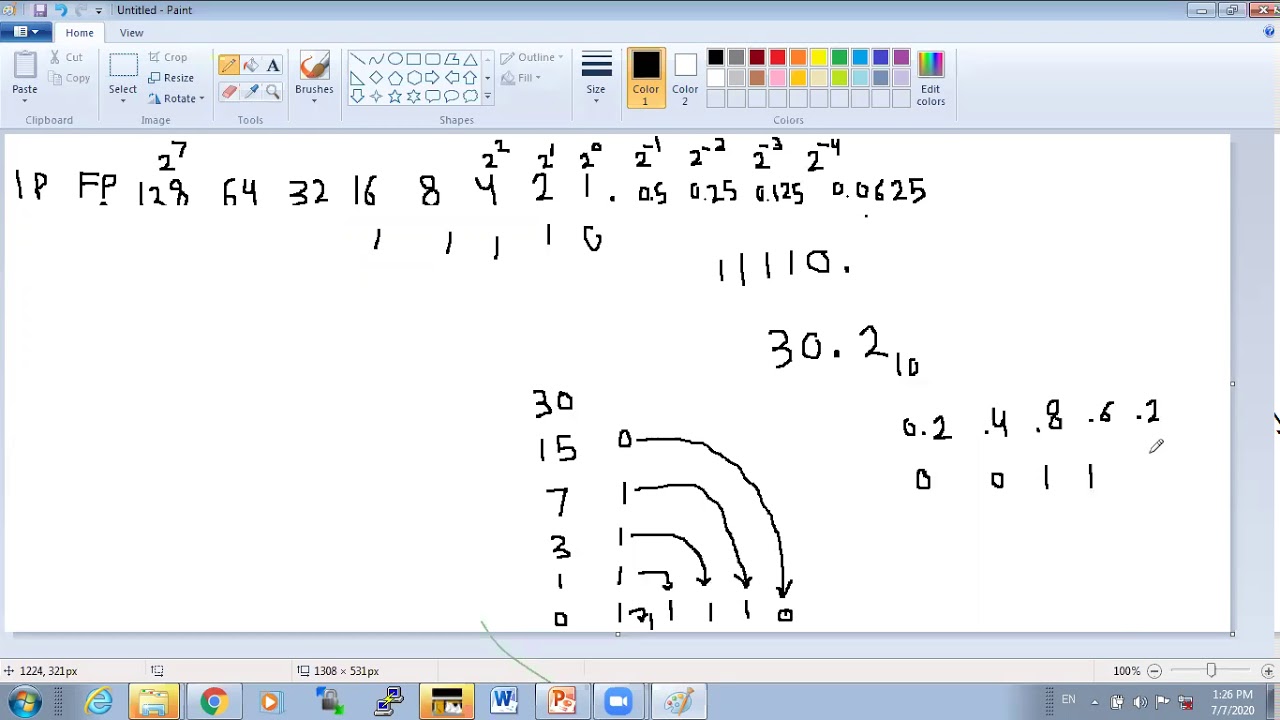 Untitled - Paint
Home View
Paste Cut Copy
Select Crop Resize Rotate
Brushes
Outline Fill
Size
Color 1
Color 2
Edit colors
Clipboard Image Tools Shapes Colors
2^7 2^2 2^1 2^0 2^-1 2^-2 2^-3 2^-4
IP FP 128 64 32 16 8 4 2 1 . 0.5 0.25 0.125 0.0625
1 1 1 1 0
11110.
30.2 10
30
15 0
7 1
3 1
1 1
0 1 1 1 1 0
0.2 .4 .8 .6 .2
0 0 1 1
1224, 321px 1308 × 531px 100%
EN 1:26 PM
7/7/2020